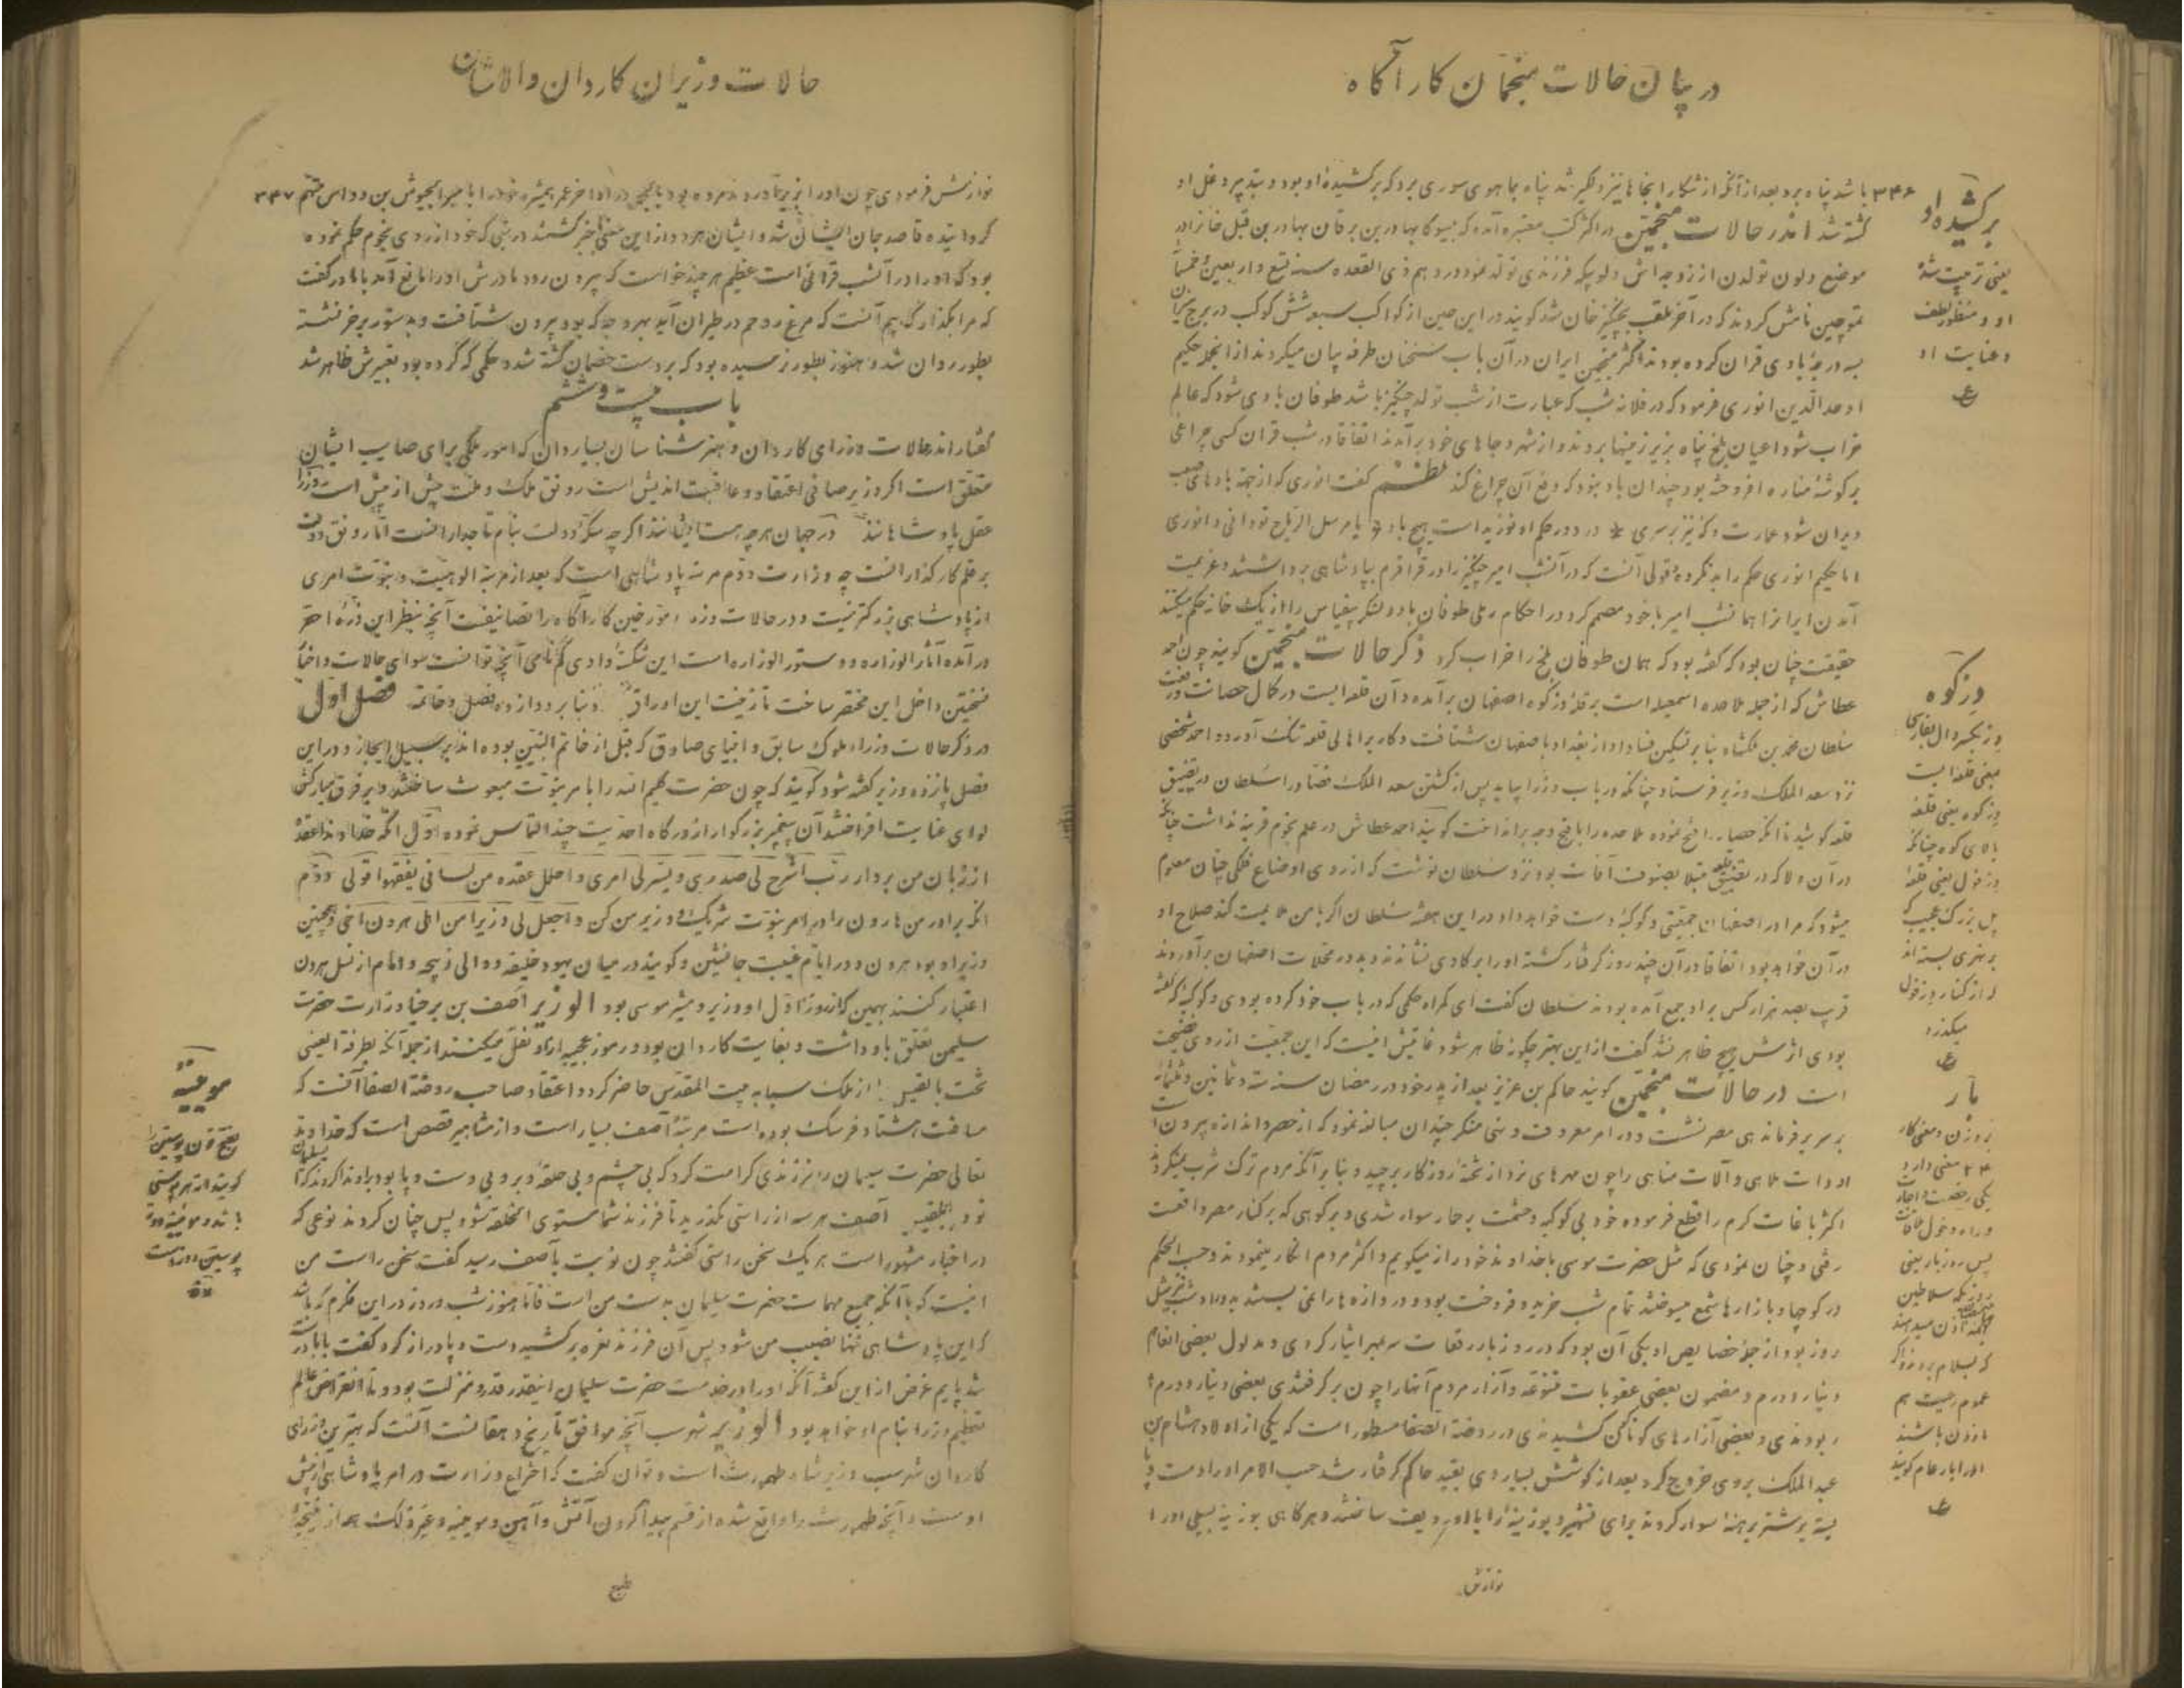 در بیان حالات منجمان کار آگاه
۳۴۶ باشد پناه برد بعد از آنکه از شکار آنجا نیز دلگیر شد پناه بماهوی سوری برد که برکشیدهٔ او بود و بتدبیر و غل او
کشته شد اندر حالات منجمین در اکثر کتب معتبره آمده که بیسوکا بهادر بن برتان بهادر بن قبل خانرا در
موضع دلون یولدن از زوجه‌اش فرزندی تولد نمود در دهم ذی القعده سنه تسع و اربعین و خمسمأ
تموچین نامش کردند که در آخر ملقب بچنگیز خان شد گویند در این حین از کواکب سبعه شش کوکب در برج میزان
سه درجهٔ بادی قران کرده بودند اکثر منجمین ایران در آن باب سخنان طرفه بیان میکردند از آنجمله حکیم
اوحد الدین انوری فرمود که در فلانه شب که عبارت از شب تولد چنگیز باشد طوفان بادی شود که عالم
خراب شود اعیان بلخ پناه بزیر زمینها بردند و از شهر و جاهای خود برآمدند اتفاقا در شب قران کسی چراغی
بر گوشهٔ مناره افروخته بود چندان باد نبود که دفع آن چراغ کند نظم گفت انوری که از جهة بادهای صعب
ویران شود عمارت و که نیز بر سری * در دور حکم او نوزیده است هیچ باد * یا مرسل الریاح تو دانی و انوری
اما حکیم انوری حکم را بد نکرده قولی آنست که در آنشب امیر چنگیز را در قراقرم بپادشاهی برداشتند و عزیمت
آمدن ایران را همانشب امیر با خود مصمم کرد و در احکام رملی طوفان باد و لشکر بیقیاس را از یک خانه حکم میکنند
حقیقت چنان بود که گفته بود که همان طوفان بلخ را خراب کرد ذکر حالات منجمین گویند چون احمد
عطاش که از جمله ملاحده اسمعیلیه است بر قلعهٔ دزکوه اصفهان برآمده و آن قلعه‌ایست در کمال حصانت و رفعت
سلطان محمد بن ملکشاه بنا بر تسکین فساد او از بغداد باصفهان شتافت و کار بر اهالی قلعه تنک آورد و احمد شخصی
نزد سعد الملک وزیر فرستاد چنانکه در باب وزرا بیاید پس از کشتن سعد الملک سلطان در تضییق
قلعه کوشید تا آنکه حصار را فتح نموده ملاحده را باقبح وجه برانداخت گویند احمد عطاش در علم نجوم قرینه نداشت چنانچه
در آن ولا که در تضییق قلعه مبتلا بصنوف آفات بود نزد سلطان نوشت که از روی اوضاع فلکی چنان معلوم
میشود که مرا در اصفهان جمعیتی و کوکبهٔ دست خواهد داد در این هفته سلطان اگر با من ملایمت کند صلاح او
در آن خواهد بود اتفاقا در آن چند روز گرفتار گشته او را بر گاوی نشاندند و در محلات اصفهان برآوردند
قریب بصد هزار کس بر او جمع آمده بودند سلطان گفت ای گمراه حکمی که در باب خود کرده بودی و کوکبهٔ که گفته
بودی اثرش هیچ ظاهر نشد گفت از این بهتر چگونه ظاهر شود غایتش اینست که این جمعیت از روی فضیحت
است در حالات منجمین گویند حاکم بن عزیز بعد از پدر خود در رمضان سنه ستة و ثمانین و ثلثمأة
بر سریر فرماندهی مصر نشست و در امر معروف و نهی منکر چندان مبالغه نمود که از حصر و اندازه بیرون است
ادوات ملاهی و آلات مناهی را چون مهره‌های نرد از تختهٔ روزگار برچید و بنا بر آنکه مردم ترک شرب نمیکردند
اکثر باغات کرم را قطع فرموده خود بی کوکبه و حشمت بر حمار سوار شدی و بر کوهی که بر کنار مصر واقعست
رفتی و چنان نمودی که مثل حضرت موسی با خداوند خود راز میگویم و اکثر مردم انکار مینمودند و حسب الحکم
در کوچها و بازارها شمع میسوختند تمام شب خرید و فروخت بود و دروازه‌ها را نمی بستند
روز بود از جمله خصایص او یکی آن بود که در روز بار رقعات سربمهر ایثار کردی و مدلول بعضی انعام
دینار و درم و مضمون بعضی عقوبات متنوعه و آزار مردم آنها را چون برگرفتندی بعضی دینار و درم
ربودندی و بعضی آزارهای گوناگون کشیدندی و در روضة الصفا مسطور است که یکی از اولاد هشام بن
عبد الملک بر وی خروج کرد بعد از کوشش بسیار وی بقید حاکم گرفتار شد حسب الامر او را دست و پا
بسته بر شتر برهنه سوار کردند برای تشهیر و بوزینهٔ را ردیفت ساختند و هرگاهی بوزینه سیلی او را
نوازش
برکشیدهٔ او
یعنی تربیت شدهٔ
او و منظور لطف
و عنایت او
ع
دزکوه
دز بکسر دال بفارسی
بمعنی قلعه است
دزکوه یعنی قلعهٔ
بالای کوه چنانکه
دزفول یعنی قلعهٔ
پل بزرگ عجیب که
بر نهری بسته‌اند
که از کنار دزفول
میگذرد
ع
بار
یکی رخصت و اجازت
و راه دخول
پس روز بار یعنی
روزی که سلاطین
اذن میدهند
که بسلام بروند و اگر
عموم رعیت هم
ماذون باشند
او را بار عام گویند
ع
حالات وزیران کاردان والاشان
نوازش فرمودی چون او را بزیر آوردند مرده بود در اواخر عمر همشیره خود را با میر الجیوش بن دواس متهم ۳۴۷
گردانیده قاصد جان ایشان شد و ایشان هر دو از این معنی باخبر گشتند در شبی که خود از روی نجوم حکم نموده
بود که او را در آنشب قرانی است عظیم هر چند خواست که بیرون رود مادرش او را مانع آمد با مادر گفت
که مرا بگذار که بیم آنست که مرغ روحم در طیران آید بهر وجه که بود بیرون شتافت و بدستور بر خر نشسته
بطور روان شد و هنوز بطور نرسیده بود که بر دست خصمان کشته شد و حکمی که کرده بود تعبیرش ظاهر شد
باب بیست و ششم
گفتار اندر حالات وزرای کاردان و هنر شناسان بسیار دان که امور ملکی برای صایب ایشان
متعلق است اگر وزیر صافی اعتقاد و عاقبت اندیش است رونق ملک و ملت بیش از پیش است وزرا
عقل پادشاهانند در جهان هر چه هست ایشانند اگر چه سکهٔ دولت بنام تاجدارانست اما رونق دولت
بر قلم کار گذارانست چه وزارت دوم مرتبه پادشاهی است که بعد از مرتبهٔ الوهیت و نبوت امری
از پادشاهی بزرگتر نیست و در حالات وزرا مورخین کار آگاه را تصانیفست آنچه بنظر این ذرهٔ احقر
درآمده آثار الوزاره و دستور الوزاره است این شکستهٔ وادی گمنامی آنچه توانست سوای حالات و اخبار
نخستین داخل این مختصر ساخت تا زینت این اوراق و بنا بر دوازده فصل و خاتمه فصل اول
در ذکر حالات وزراء ملوک سابق و انبیای صادق که قبل از خاتم النبیین بوده‌اند بر سبیل ایجاز و در این
فصل پانزده وزیر گفته شود گویند که چون حضرت کلیم الله را بامر نبوت مبعوث ساختند و بر فرق مبارکش
لوای عنایت افراختند آن پیغمبر بزرگوار از درگاه احدیت چند التماس نموده اول آنکه خداوندا عقدهٔ
از زبان من بردار رب اشرح لی صدری و یسر لی امری و احلل عقده من لسانی یفقهوا قولی دوم
آنکه برادر من هارون را در امر نبوت شریک و وزیر من کن و اجعل لی وزیرا من اهلی هرون اخی و همچنین
وزیر او بود هرون و در ایام غیبت جانشین و گویند در میان یهود خلیفه و والی و ذبیحه و امام از نسل هرون
اعتبار کنند بهمین که از روز اول او وزیر و مشیر موسی بود الوزیر آصف بن برخیا وزارت حضرت
سلیمن تعلق باو داشت و بغایت کاردان بود و رموز عجیبه از او نقل میکنند از جمله آنکه بطرفة العینی
تخت بلقیس را از ملک سبا به بیت المقدس حاضر کرد و اعتقاد صاحب روضة الصفا آنست که
مسافت هشتاد فرسنک بوده است مرتبهٔ آصف بسیار است و از مشاهیر قصص است که خداوند
تعالی حضرت سلیمان را فرزندی کرامت کرد که بی چشم و بی حلقهٔ دبر و بی دست و پا بود
تو و بلقیس و آصف هر سه از راستی نگذرید تا فرزند شما مستوی الخلقه شود پس چنان کردند نوعی که
در اخبار مشهور است هر یک سخن راستی گفتند چون نوبت بآصف رسید گفت سخن راست من
اینست که با آنکه جمیع مهمات حضرت سلیمان بدست من است فاما هنوز شب و روز در این فکرم که باشد
که این پادشاهی تنها نصیب من شود پس آن فرزند نعره برکشید و دست و پا دراز کرد و گفت بابا
شد پایم غرض از این گفته آنکه او را در خدمت حضرت سلیمان اینقدر قدر و منزلت بود و تا انقراض عالم
تعظیم وزرا بنام او خواهد بود الوزیر شهرسب آنچه موافق تاریخ دهقانست آنست که بهترین وزرای
کاردان شهرسب وزیر شاه طهمورث است و توان گفت که اختراع وزارت در امر پادشاهی از پیش
اوست و آنچه طهمورث را واقع شده از قسم پیدا کردن آتش و آهن و موئینه و غیر ذلک همه از نتیجهٔ
طبع
موئینه
پوستین را
گویند
باشد و موئینه دوز
پوستین دوز است